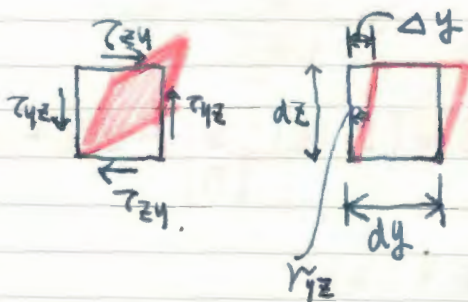 τzy
τyz
τyz
τzy.
Δy
dz
dy.
γyz